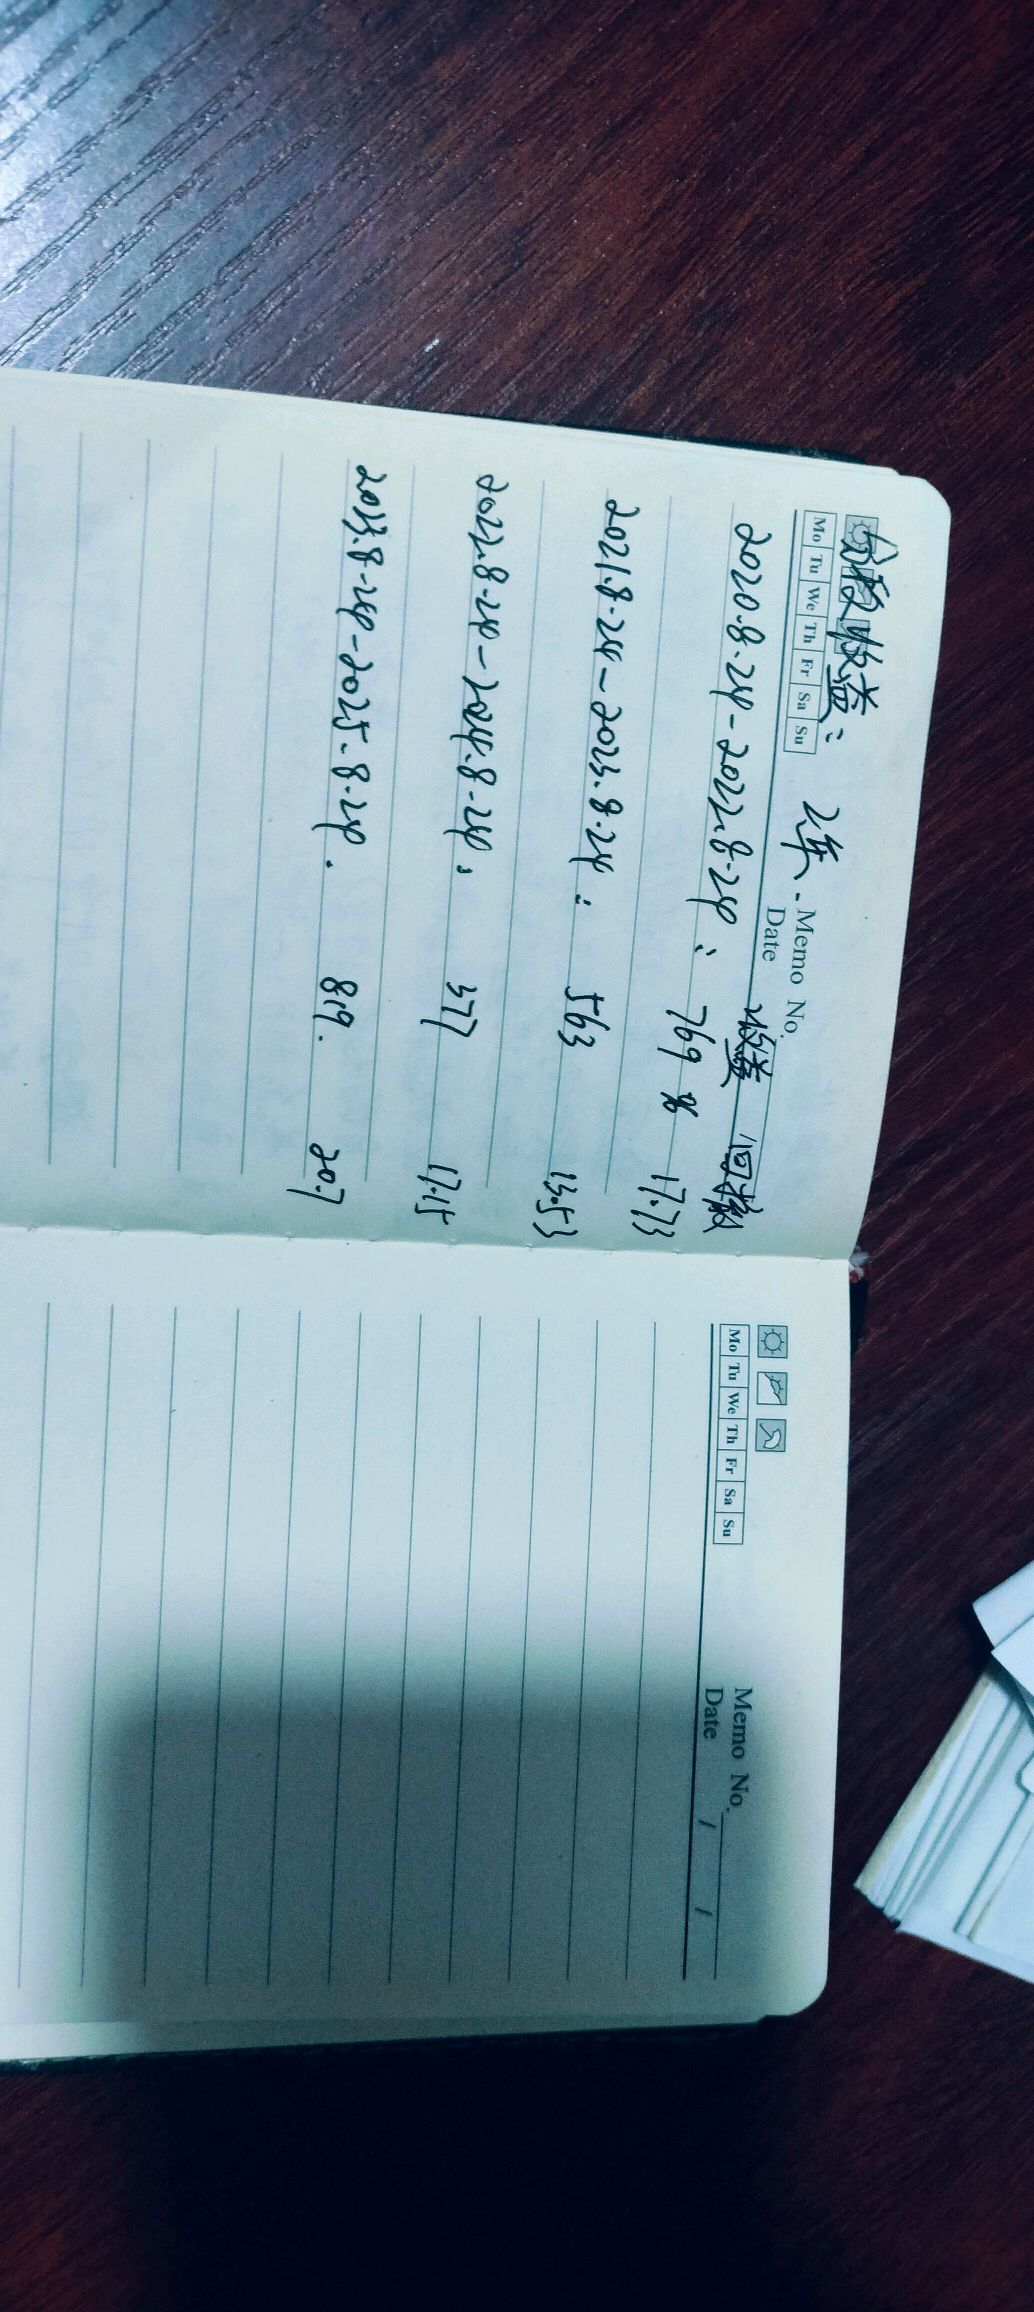 分段收益: 2年.
Mo Tu We Th Fr Sa Su
Memo No.
Date
收益 回撤
2020.8.24-2022.8.24: 769% 17.73
2021.8.24-2023.8.24: 563 13.53
2022.8.24-2024.8.24: 377 17.15
2023.8.24-2025.8.24. 819. 20.7
Mo Tu We Th Fr Sa Su
Memo No.
Date / /